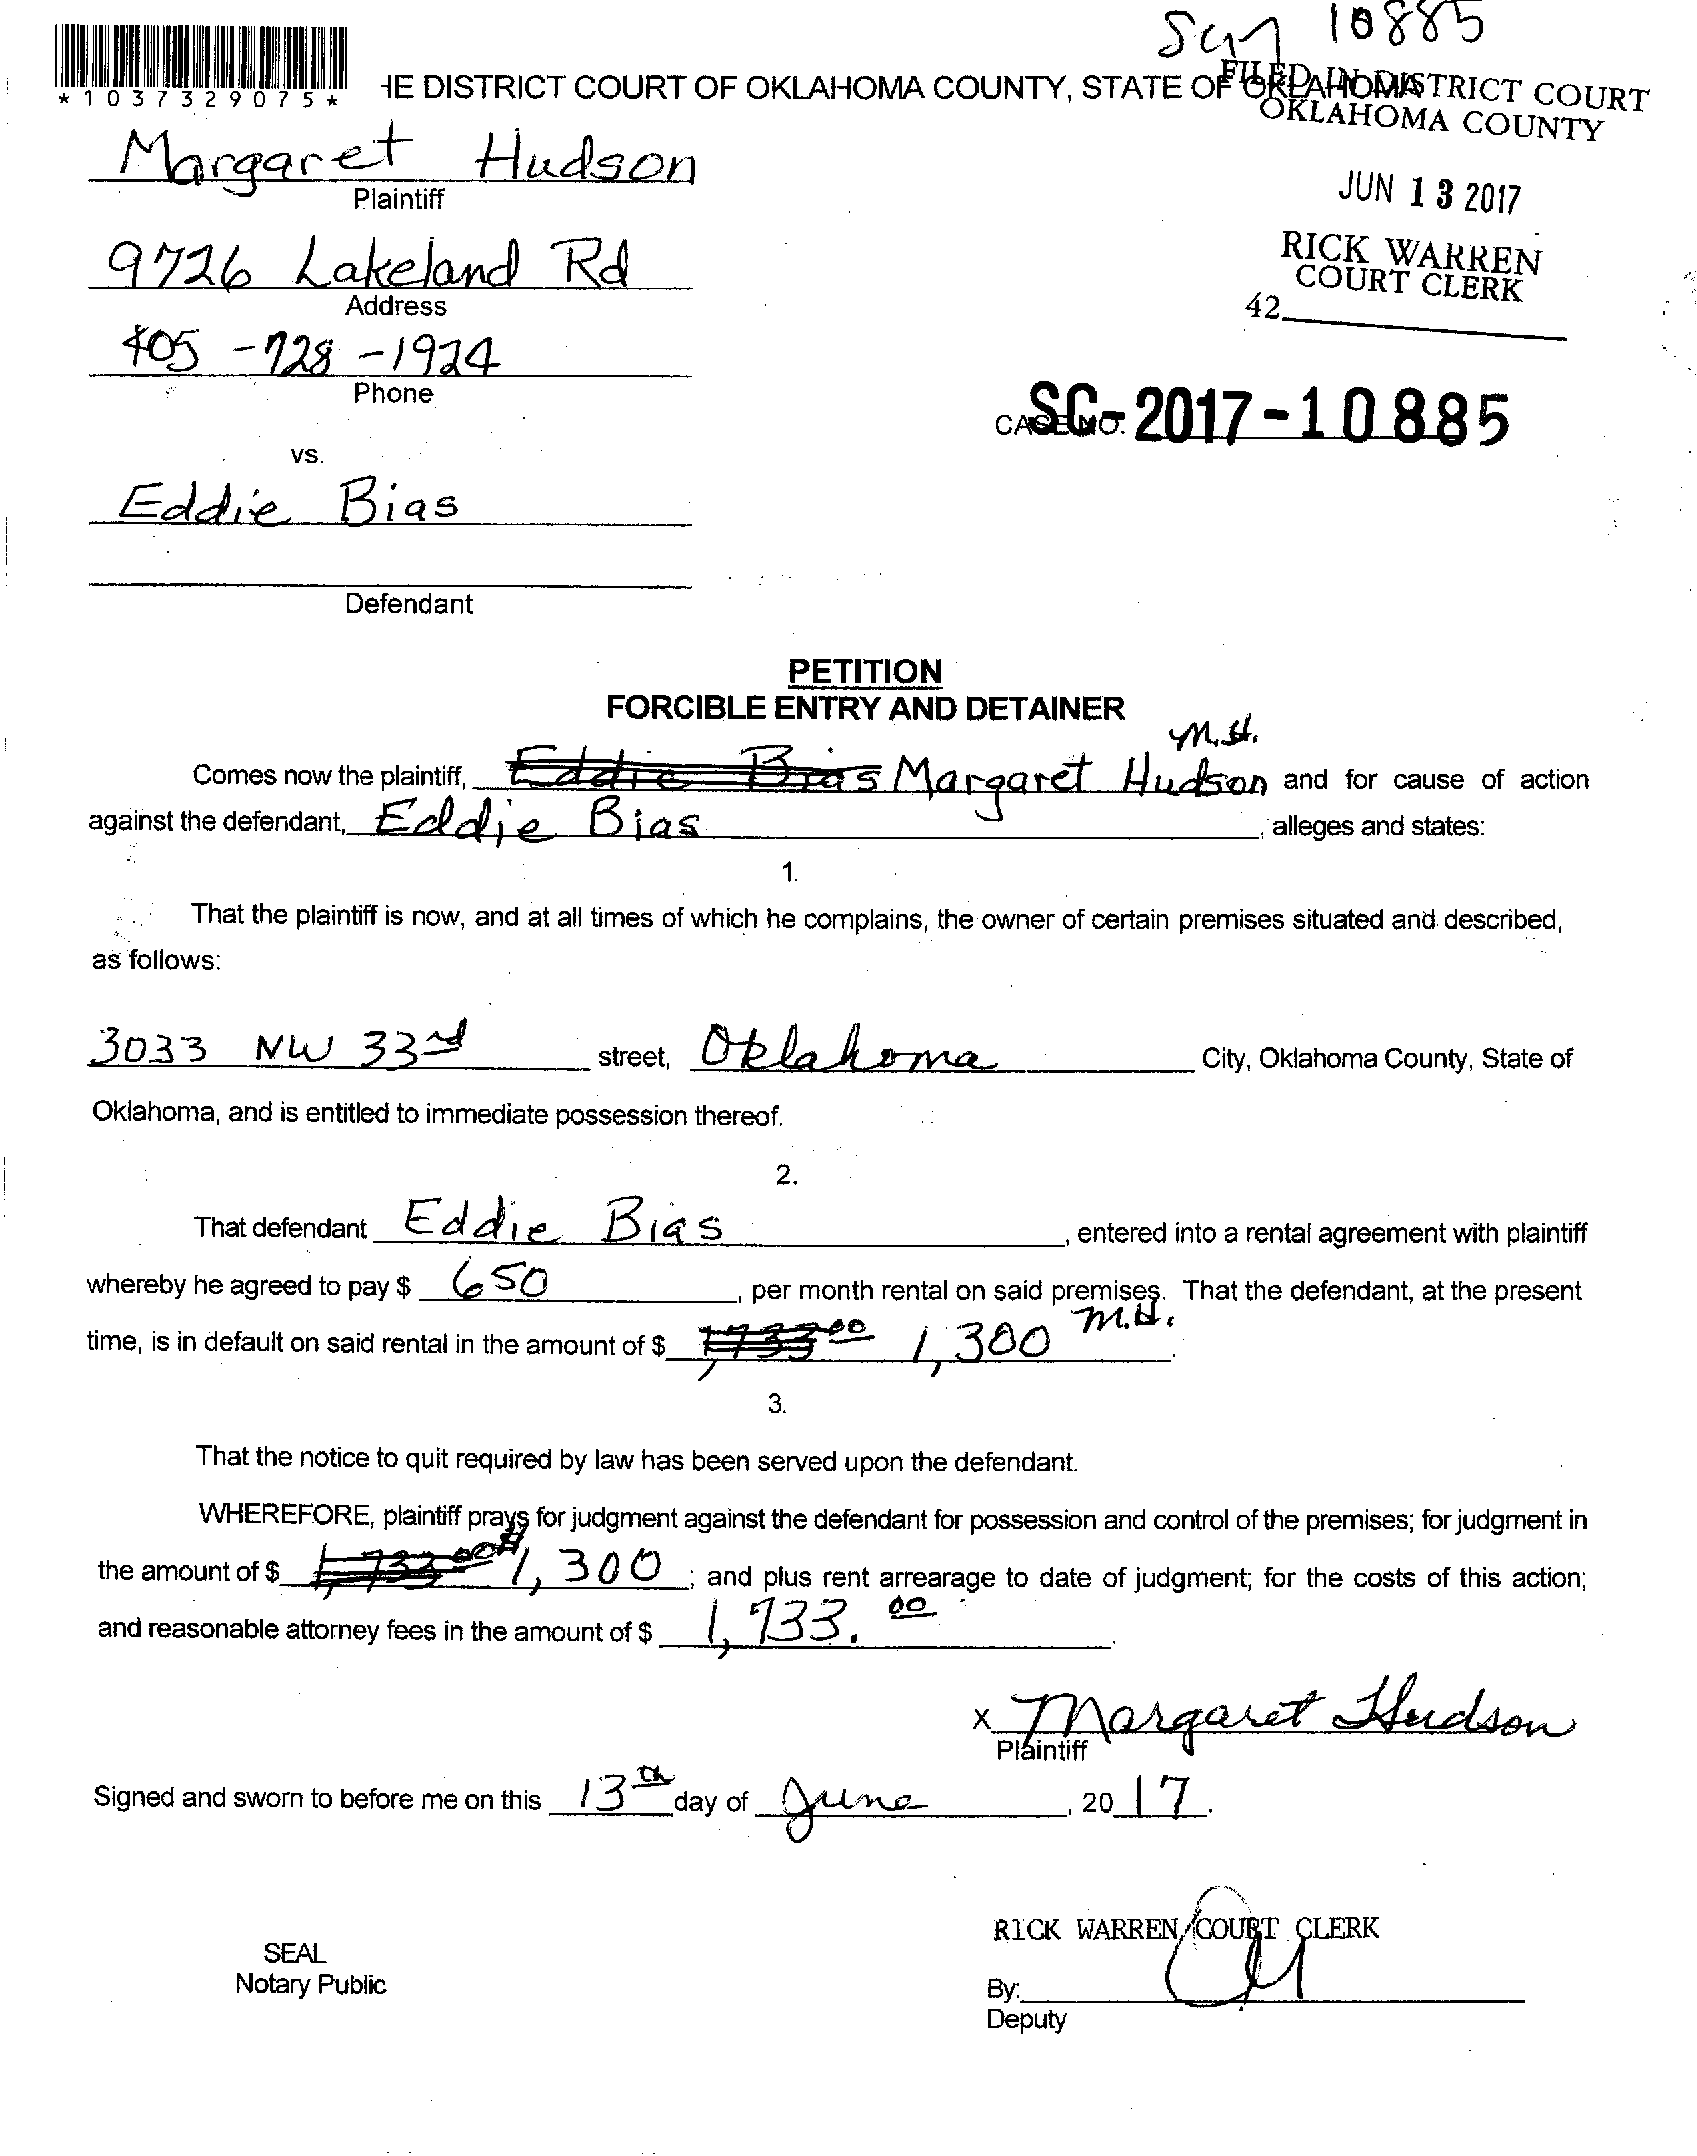 Scn 10885
*1037329075*
HE DISTRICT COURT OF OKLAHOMA COUNTY, STATE OF OKLAHOMA
FILED IN DISTRICT COURT
OKLAHOMA COUNTY
Margaret Hudson
Plaintiff
JUN 13 2017
9726 Lakeland Rd
Address
RICK WARREN
COURT CLERK
42
405-728-1924
Phone
CASE NO. SC-2017-10885
vs.
Eddie Bias
Defendant
PETITION
FORCIBLE ENTRY AND DETAINER
M.H.
Comes now the plaintiff, Eddie Bias Margaret Hudson and for cause of action
against the defendant, Eddie Bias, alleges and states:
1.
That the plaintiff is now, and at all times of which he complains, the owner of certain premises situated and described,
as follows:
3033 NW 33rd street, Oklahoma City, Oklahoma County, State of
Oklahoma, and is entitled to immediate possession thereof.
2.
That defendant Eddie Bias, entered into a rental agreement with plaintiff
whereby he agreed to pay $ 650, per month rental on said premises. That the defendant, at the present
time, is in default on said rental in the amount of $ 1,733 00 1,300 M.H.
3.
That the notice to quit required by law has been served upon the defendant.
WHEREFORE, plaintiff prays for judgment against the defendant for possession and control of the premises; for judgment in
the amount of $ 1,733 00 1,300; and plus rent arrearage to date of judgment; for the costs of this action;
and reasonable attorney fees in the amount of $ 1,733.00.
x Margaret Hudson
Plaintiff
Signed and sworn to before me on this 13th day of June, 2017.
RICK WARREN, COURT CLERK
SEAL
Notary Public
By:
Deputy